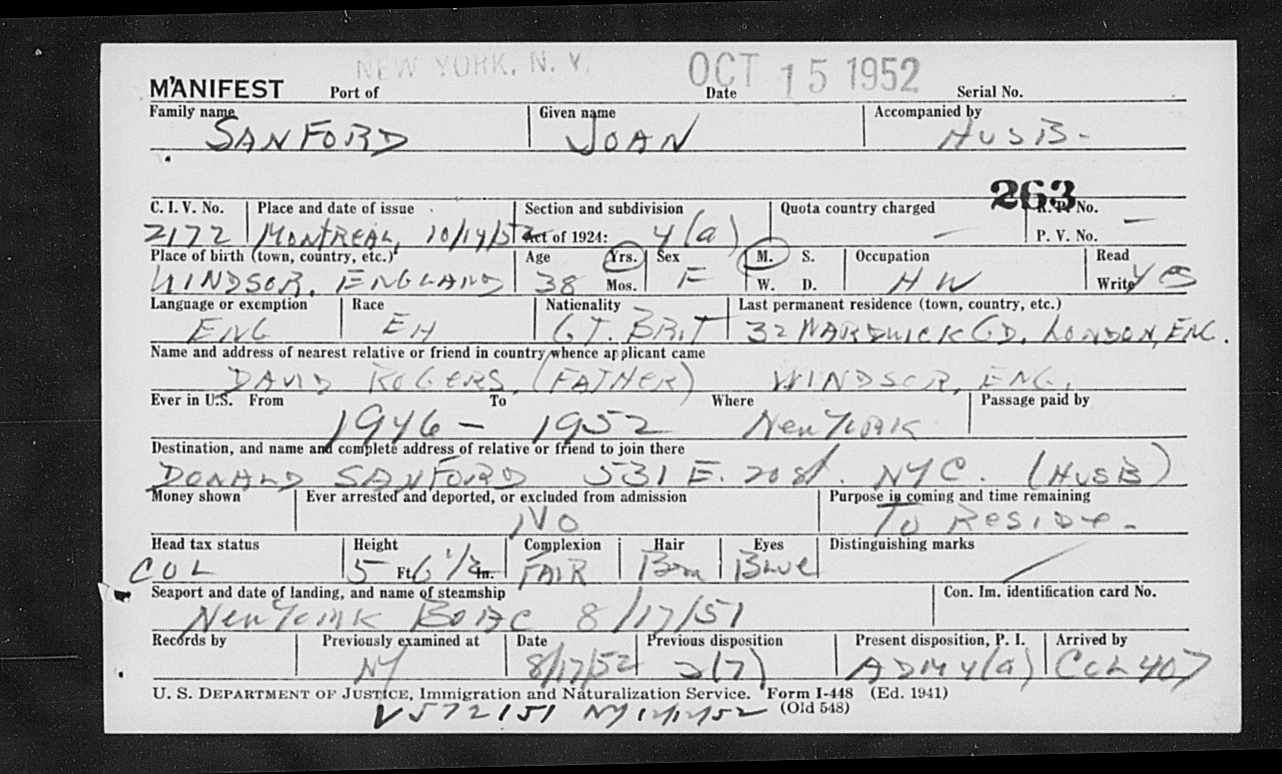 NEW YORK, N. Y. OCT 15 1952
MANIFEST Port of Date Serial No.
Family name Given name Accompanied by
SANFORD JOAN HUSB-
263
C. I. V. No. Place and date of issue Section and subdivision Quota country charged R. P. No.
2172 MONTREAL, 10/14/52 Act of 1924: 4(a) — P. V. No. —
Place of birth (town, country, etc.) Age Yrs. Sex M. S. Occupation Read
WINDSOR, ENGLAND 38 Mos. F W. D. HW Write YES
Language or exemption Race Nationality Last permanent residence (town, country, etc.)
ENG EN GT. BRIT 32 GD. LONDON, ENG.
Name and address of nearest relative or friend in country whence applicant came
DAVID ROGERS, (FATHER) WINDSOR, ENG,
Ever in U.S. From To Where Passage paid by
1946 - 1952 New York
Destination, and name and complete address of relative or friend to join there
DONALD SANFORD 531 E. 20 st. NYC. (HUSB)
Money shown Ever arrested and deported, or excluded from admission Purpose in coming and time remaining
NO To RESIDE-
Head tax status Height Complexion Hair Eyes Distinguishing marks
COL 5 Ft. 6 1/2 In. FAIR Brn BLUE /
Seaport and date of landing, and name of steamship Con. Im. identification card No.
New York BOAC 8/17/51
Records by Previously examined at Date Previous disposition Present disposition, P. I. Arrived by
NY 8/17/52 2(7) ADM 4(a) COL 407
U. S. DEPARTMENT OF JUSTICE, Immigration and Naturalization Service. Form I-448 (Ed. 1941)
V572151 NY 12/12/52 (Old 548)